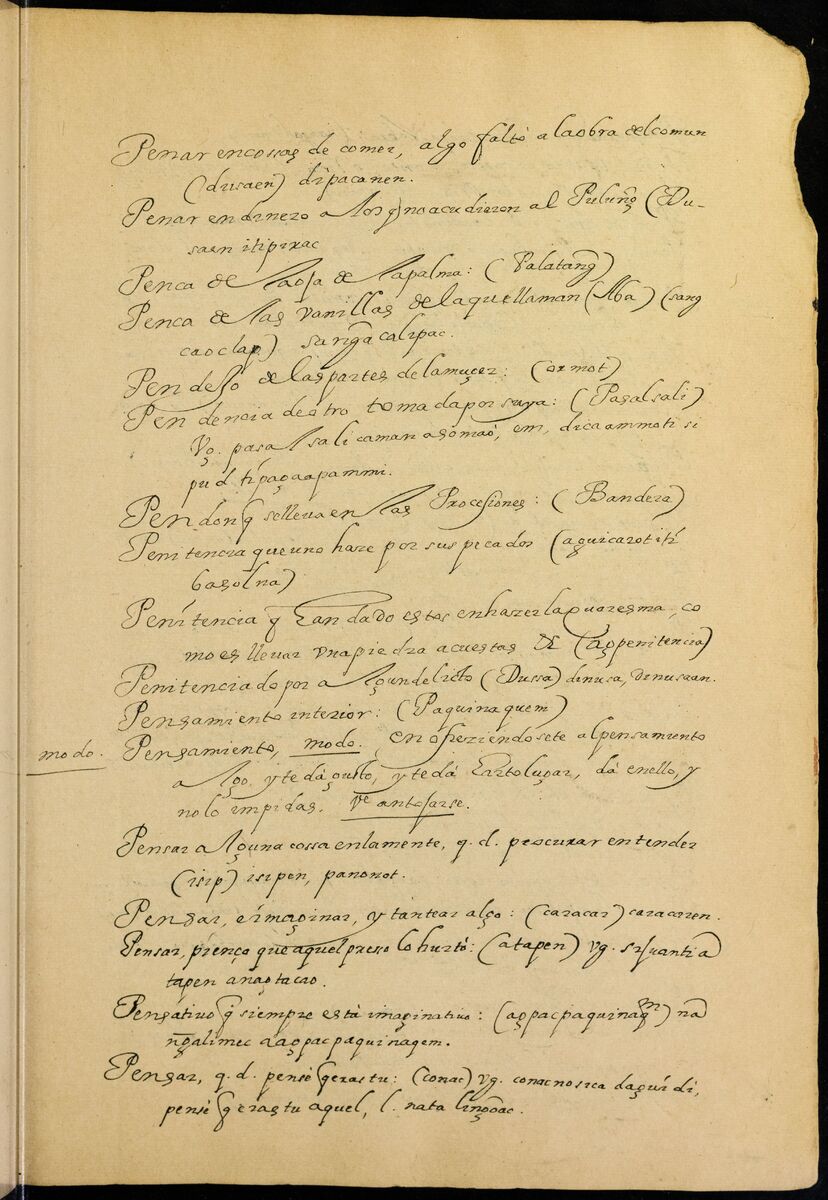 Penar en cossas de comer, algo faltò a la obra del comun
(dusaen) dipacanen.
Penar en dinero a los q̃ no acudieron al Pulung̃ (Du-
saen itipirac
Penca de la oja de la palma: (Palatang̃)
Penca de las vanillas de la que llaman (Aba) (sang
caoclap) sa ng̃a calipac.
Pendejo de las partes de la muger: (ormot)
Pendencia de otro tomada por suya: (Pasalsali)
Vg. pasalsali caman agomaò, em, dica ammoti si
pud tipagaapammi.
Pendon q̃ se lleua en las Procesiones: (Bandera)
Penitencia que uno haze por sus pecados (aguicarotiti
basolna)
Penitencia q̃ han dado estos en hazer la quaresma, co
mo es lleuar vna piedra acuestas &c (agpenitencia)
Penitenciado por algun delicto (Dussa) dinusa, dinusaan.
Pensamiento interior: (Paquinaquem)
modo.
Pensamiento, modo. en ofreziendosete al pensamiento
algo y te dà gusto, y te dà harto lugar, dà en ello, y
no lo impidas. Ve antojarse.
Pensar alguna cossa en la mente, q. d. procurar entender
(isip) isipen, panonot.
Pensar, è imaginar, y tantear algo: (caracar) caracaren.
Pensar, pienço que aquel preso lo hurtò: (atapen) vg. sisuantia
tapen anagtacao.
Pensatiuo q̃ siempre està imaginatiuo: (agpacpaquinaqm) na
ng̃alimec a agpacpaquinagem.
Pensar, q. d. pensè q̃ eras tu: (conac) vg. conac no sica dagui di,
pensè q̃ eras tu aquel, l. nata ling̃oac.